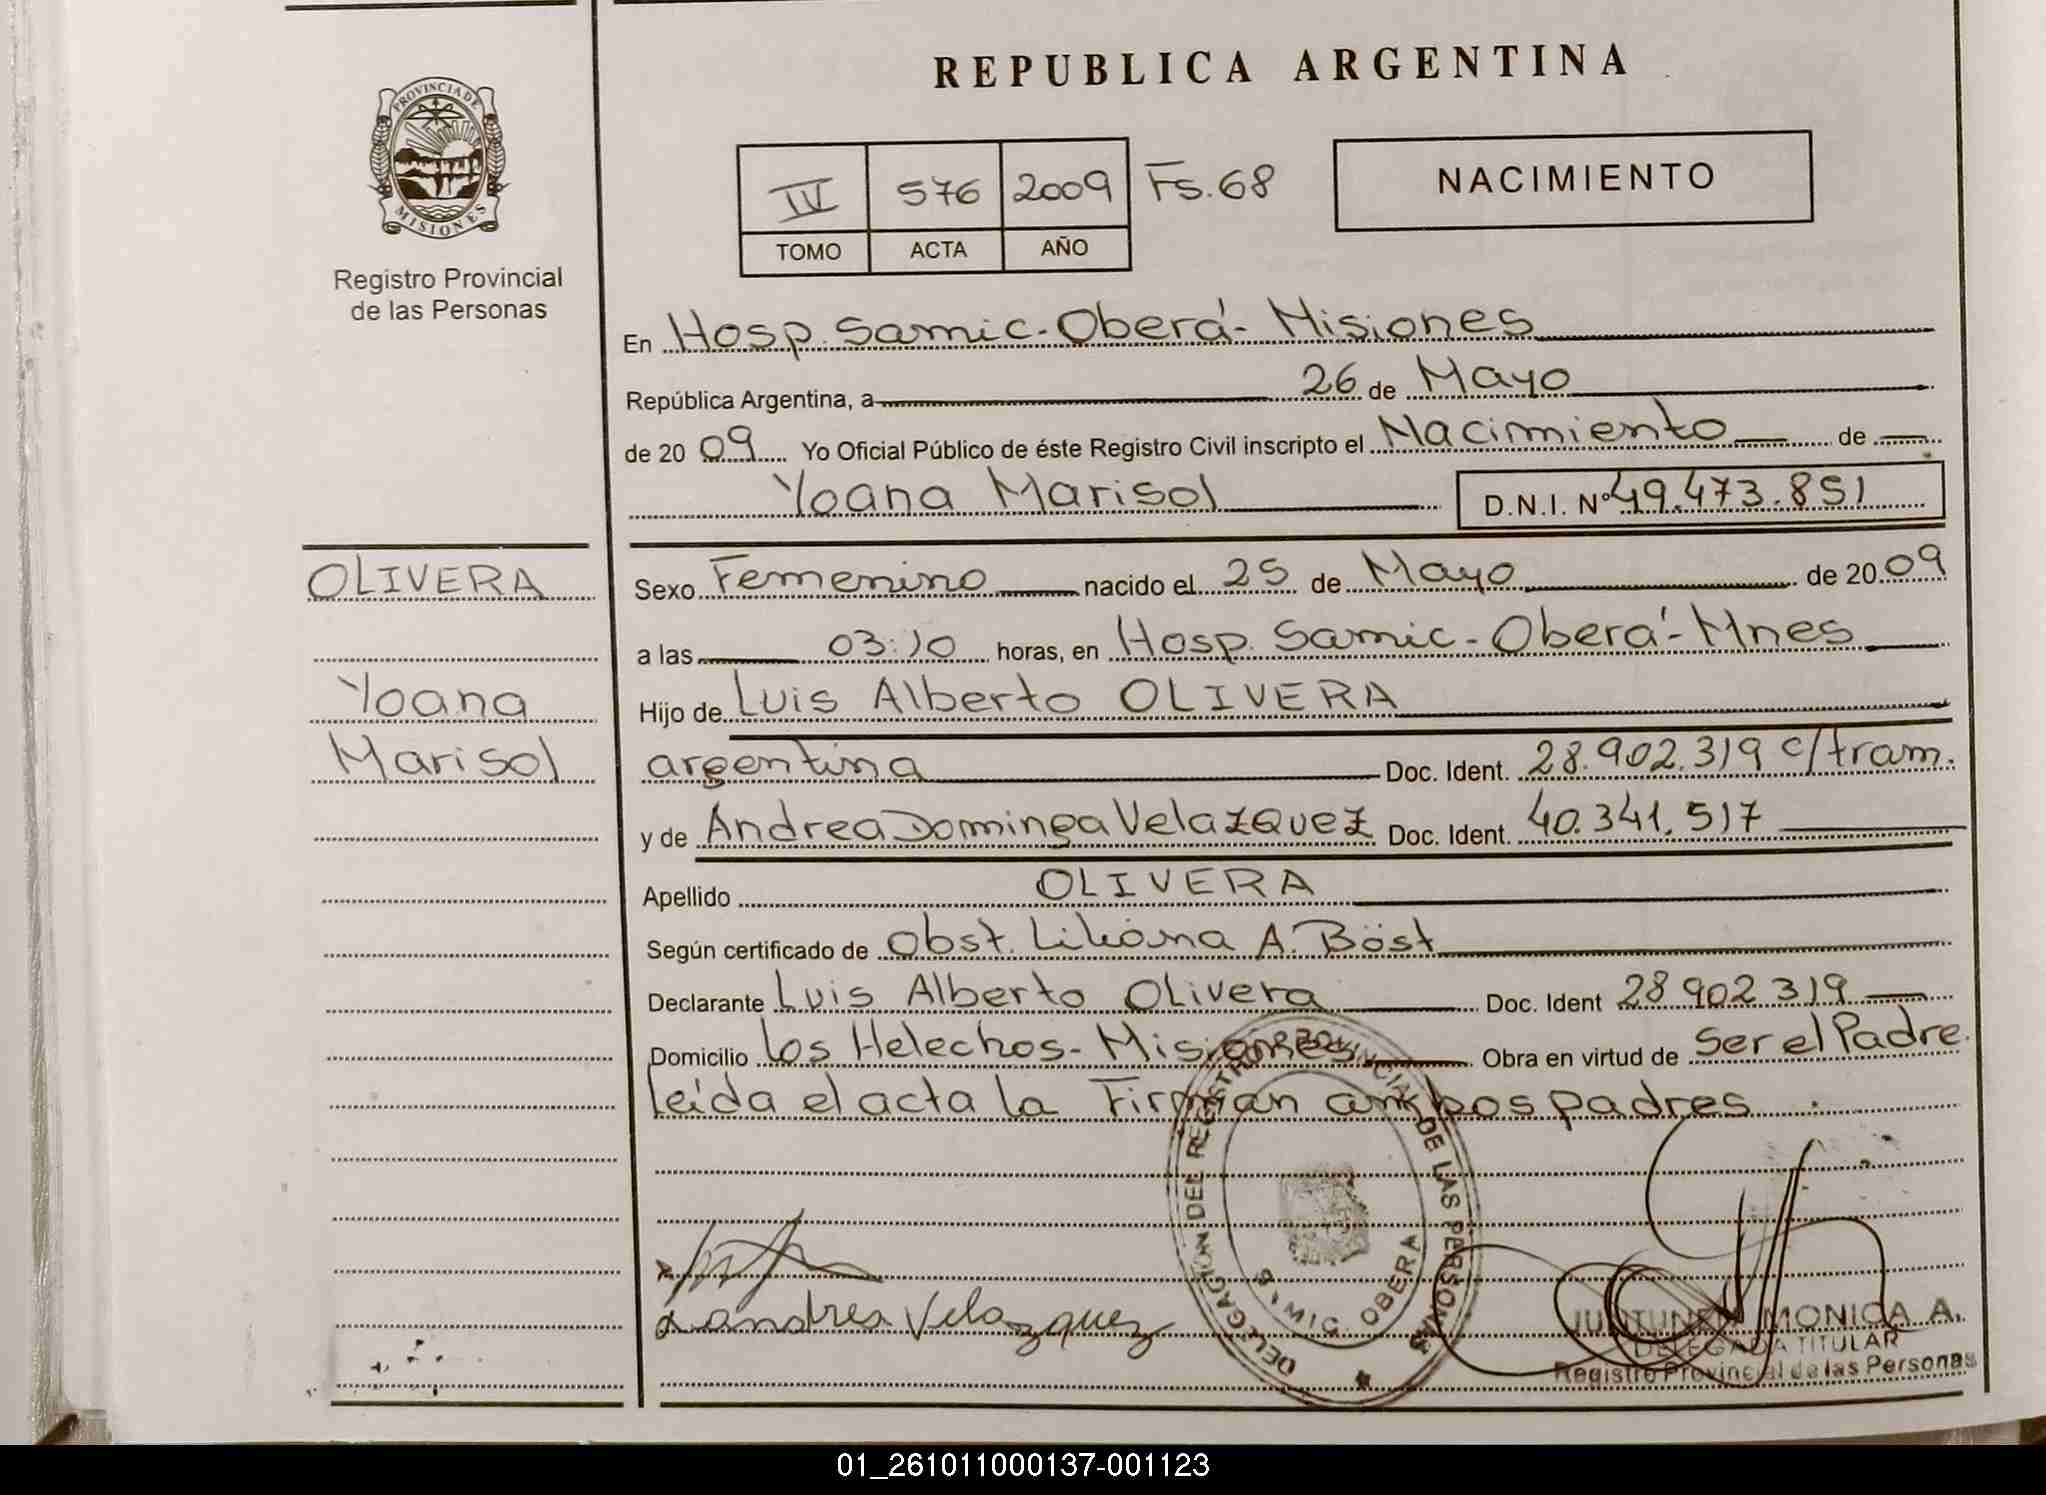 REPUBLICA ARGENTINA
PROVINCIA DE
MISIONES
Registro Provincial
de las Personas
IV 576 2009 Fs.68
TOMO ACTA AÑO
NACIMIENTO
En Hosp. Samic-Oberá-Misiones
República Argentina, a 26 de Mayo
de 20 09 Yo Oficial Público de éste Registro Civil inscripto el Nacimiento de
Yoana Marisol D.N.I. Nº 49.473.851
OLIVERA
Yoana
Marisol
Sexo Femenino nacido el 25 de Mayo de 20 09
a las 03:10 horas, en Hosp. Samic-Oberá-Mnes
Hijo de Luis Alberto OLIVERA
argentina Doc. Ident. 28.902.319 c/tram.
y de Andrea Dominga Velazquez Doc. Ident. 40.341.517
Apellido OLIVERA
Según certificado de Obst. Liliana A. Böst
Declarante Luis Alberto Olivera Doc. Ident 28 902 319
Domicilio Los Helechos-Misiones Obra en virtud de Ser el Padre.
leída el acta la Firman ambos padres
DELEGACION DEL REGISTRO PROVINCIAL DE LAS PERSONAS
OBERA
andrea Velazquez
MONICA A.
DELEGADA TITULAR
Registro Provincial de las Personas
01_261011000137-001123